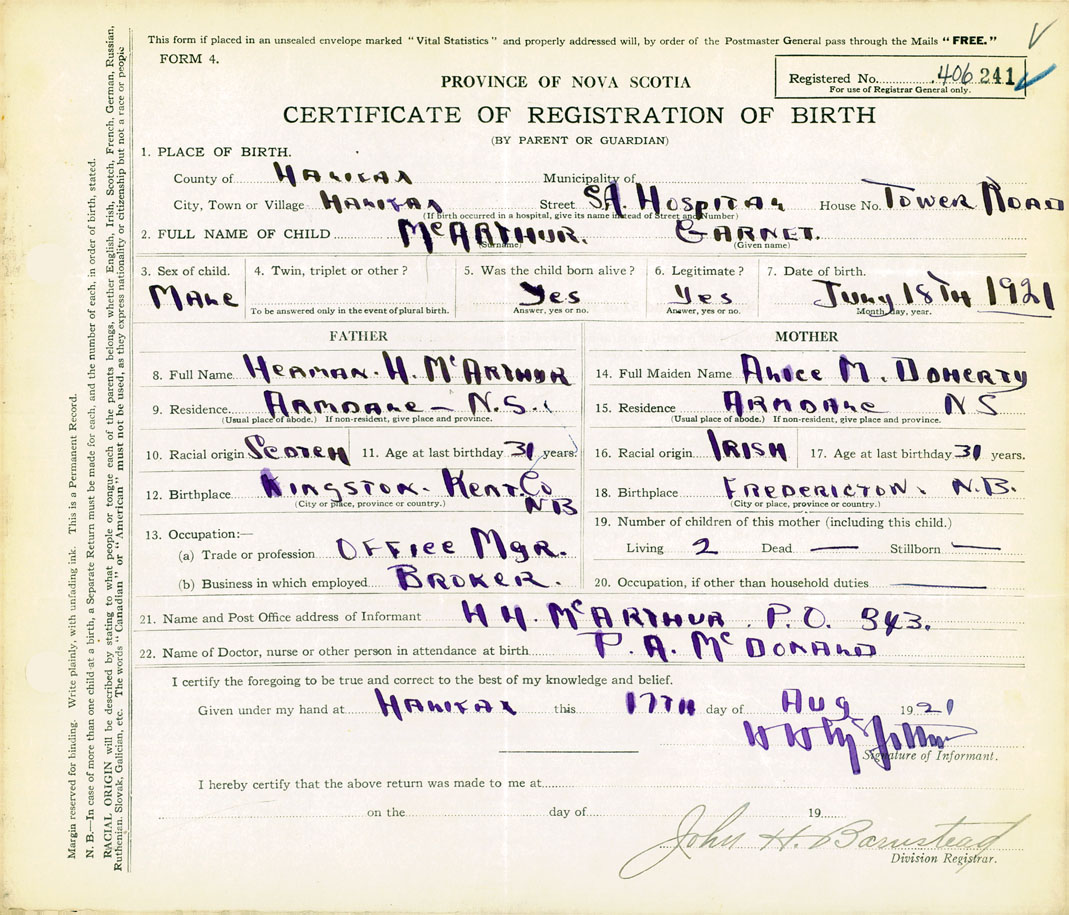 This form if placed in an unsealed envelope marked "Vital Statistics" and properly addressed will, by order of the Postmaster General pass through the Mails "FREE."
FORM 4.
Registered No. 406 241
For use of Registrar General only.
PROVINCE OF NOVA SCOTIA
CERTIFICATE OF REGISTRATION OF BIRTH
(BY PARENT OR GUARDIAN)
1. PLACE OF BIRTH.
County of HALIFAX Municipality of
City, Town or Village HALIFAX Street SA. HOSPITAL House No. TOWER ROAD
(If birth occurred in a hospital, give its name instead of Street and Number)
2. FULL NAME OF CHILD McARTHUR. GARNET.
(Surname) (Given name)
3. Sex of child. 4. Twin, triplet or other? 5. Was the child born alive? 6. Legitimate? 7. Date of birth.
MALE Yes Yes JULY 18TH 1921
To be answered only in the event of plural birth. Answer, yes or no. Answer, yes or no. Month, day, year.
FATHER MOTHER
8. Full Name HERMAN. H. McARTHUR 14. Full Maiden Name ALICE M. DOHERTY
9. Residence ARMDALE - N.S. 15. Residence ARMDALE NS
(Usual place of abode.) If non-resident, give place and province. (Usual place of abode.) If non-resident, give place and province.
10. Racial origin SCOTCH 11. Age at last birthday 31 years. 16. Racial origin IRISH 17. Age at last birthday 31 years.
12. Birthplace KINGSTON. KENT. Co NB 18. Birthplace FREDERICTON. N.B.
(City or place, province or country.) (City or place, province or country.)
13. Occupation:— 19. Number of children of this mother (including this child.)
(a) Trade or profession OFFICE MGR. Living 2 Dead — Stillborn —
(b) Business in which employed BROKER. 20. Occupation, if other than household duties ——
21. Name and Post Office address of Informant H H. McARTHUR. P.O. 943.
22. Name of Doctor, nurse or other person in attendance at birth P. A. McDONALD
I certify the foregoing to be true and correct to the best of my knowledge and belief.
Given under my hand at HALIFAX this 17TH day of AUG 1921
Signature of Informant.
I hereby certify that the above return was made to me at
on the day of 19
John H. Barnstead
Division Registrar.
Margin reserved for binding. Write plainly, with unfading ink. This is a Permanent Record.
N. B.—In case of more than one child at a birth, a Separate Return must be made for each, and the number of each, in order of birth, stated.
RACIAL ORIGIN will be described by stating to what people or tongue each of the parents belongs, whether English, Irish, Scotch, French, German, Russian,
Ruthenian, Slovak, Galician, etc. The words "Canadian" or "American" must not be used, as they express nationality or citizenship but not a race or people